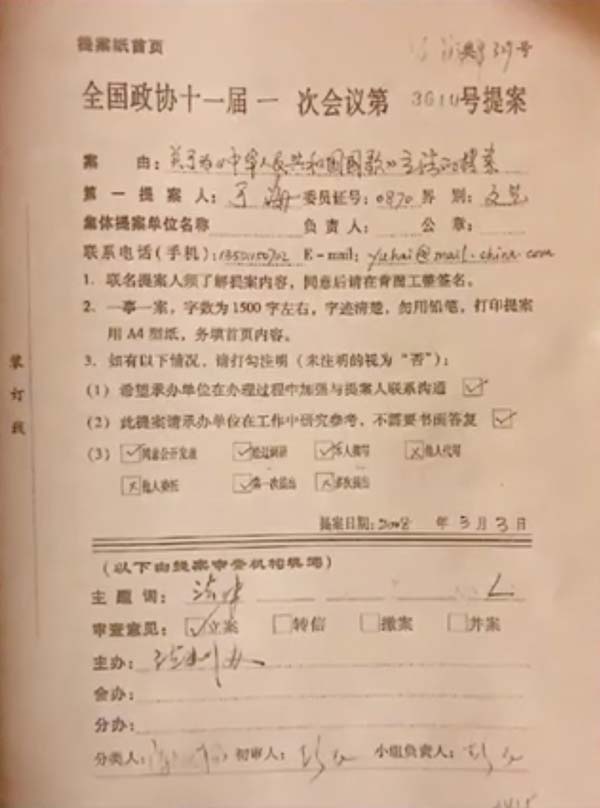 提案纸首页
号
全国政协十一届一次会议第3610号提案
案由：关于为《中华人民共和国国歌》立法的提案
第一提案人：于海 委员证号：0870 界别：文艺
集体提案单位名称 负责人： 公章：
联系电话（手机）： E-mail：yuhai@mail.china.com
1．联名提案人须了解提案内容，同意后请在背面工整签名。
2．一事一案，字数为1500字左右，字迹清楚，勿用铅笔，打印提案
用A4型纸，务填首页内容。
3．如有以下情况，请打勾注明（未注明的视为“否”）：
（1）希望承办单位在办理过程中加强与提案人联系沟通 ✓
（2）此提案请承办单位在工作中研究参考，不需要书面答复 ✓
（3）✓同意公开发表 ✓经过调研 ✓本人撰写 ×他人代写
×他人委托 ✓第一次提出 ×多次提出
提案日期：2008年3月3日
装订线
（以下由提案审查机构填写）
主题词：法律
审查意见：✓立案 □转信 □撤案 □并案
主办：法制办
会办：
分办：
分类人： 初审人： 小组负责人：